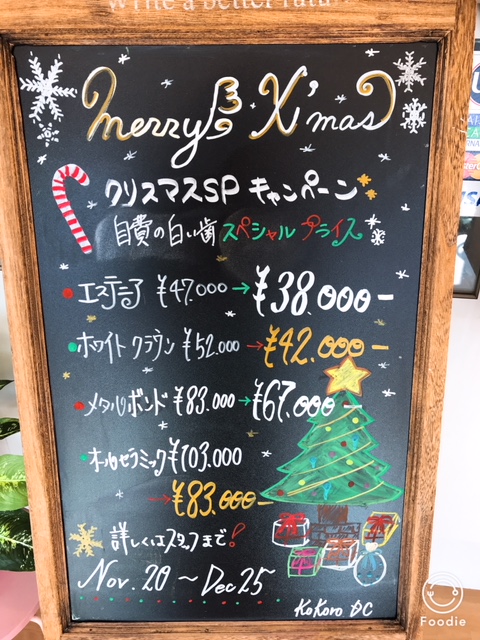 Write a better futu
Merry X'mas
クリスマスSP キャンペーン
自費の白い歯 スペシャル プライス
エステニア ¥47.000→¥38.000-
ホワイト クラウン ¥52.000→¥42.000-
メタルボンド ¥83.000→¥67.000-
オールセラミック¥103.000
→¥83.000-
詳しくはスタッフまで!
Nov.20〜Dec25
KoKoro DC
Foodie